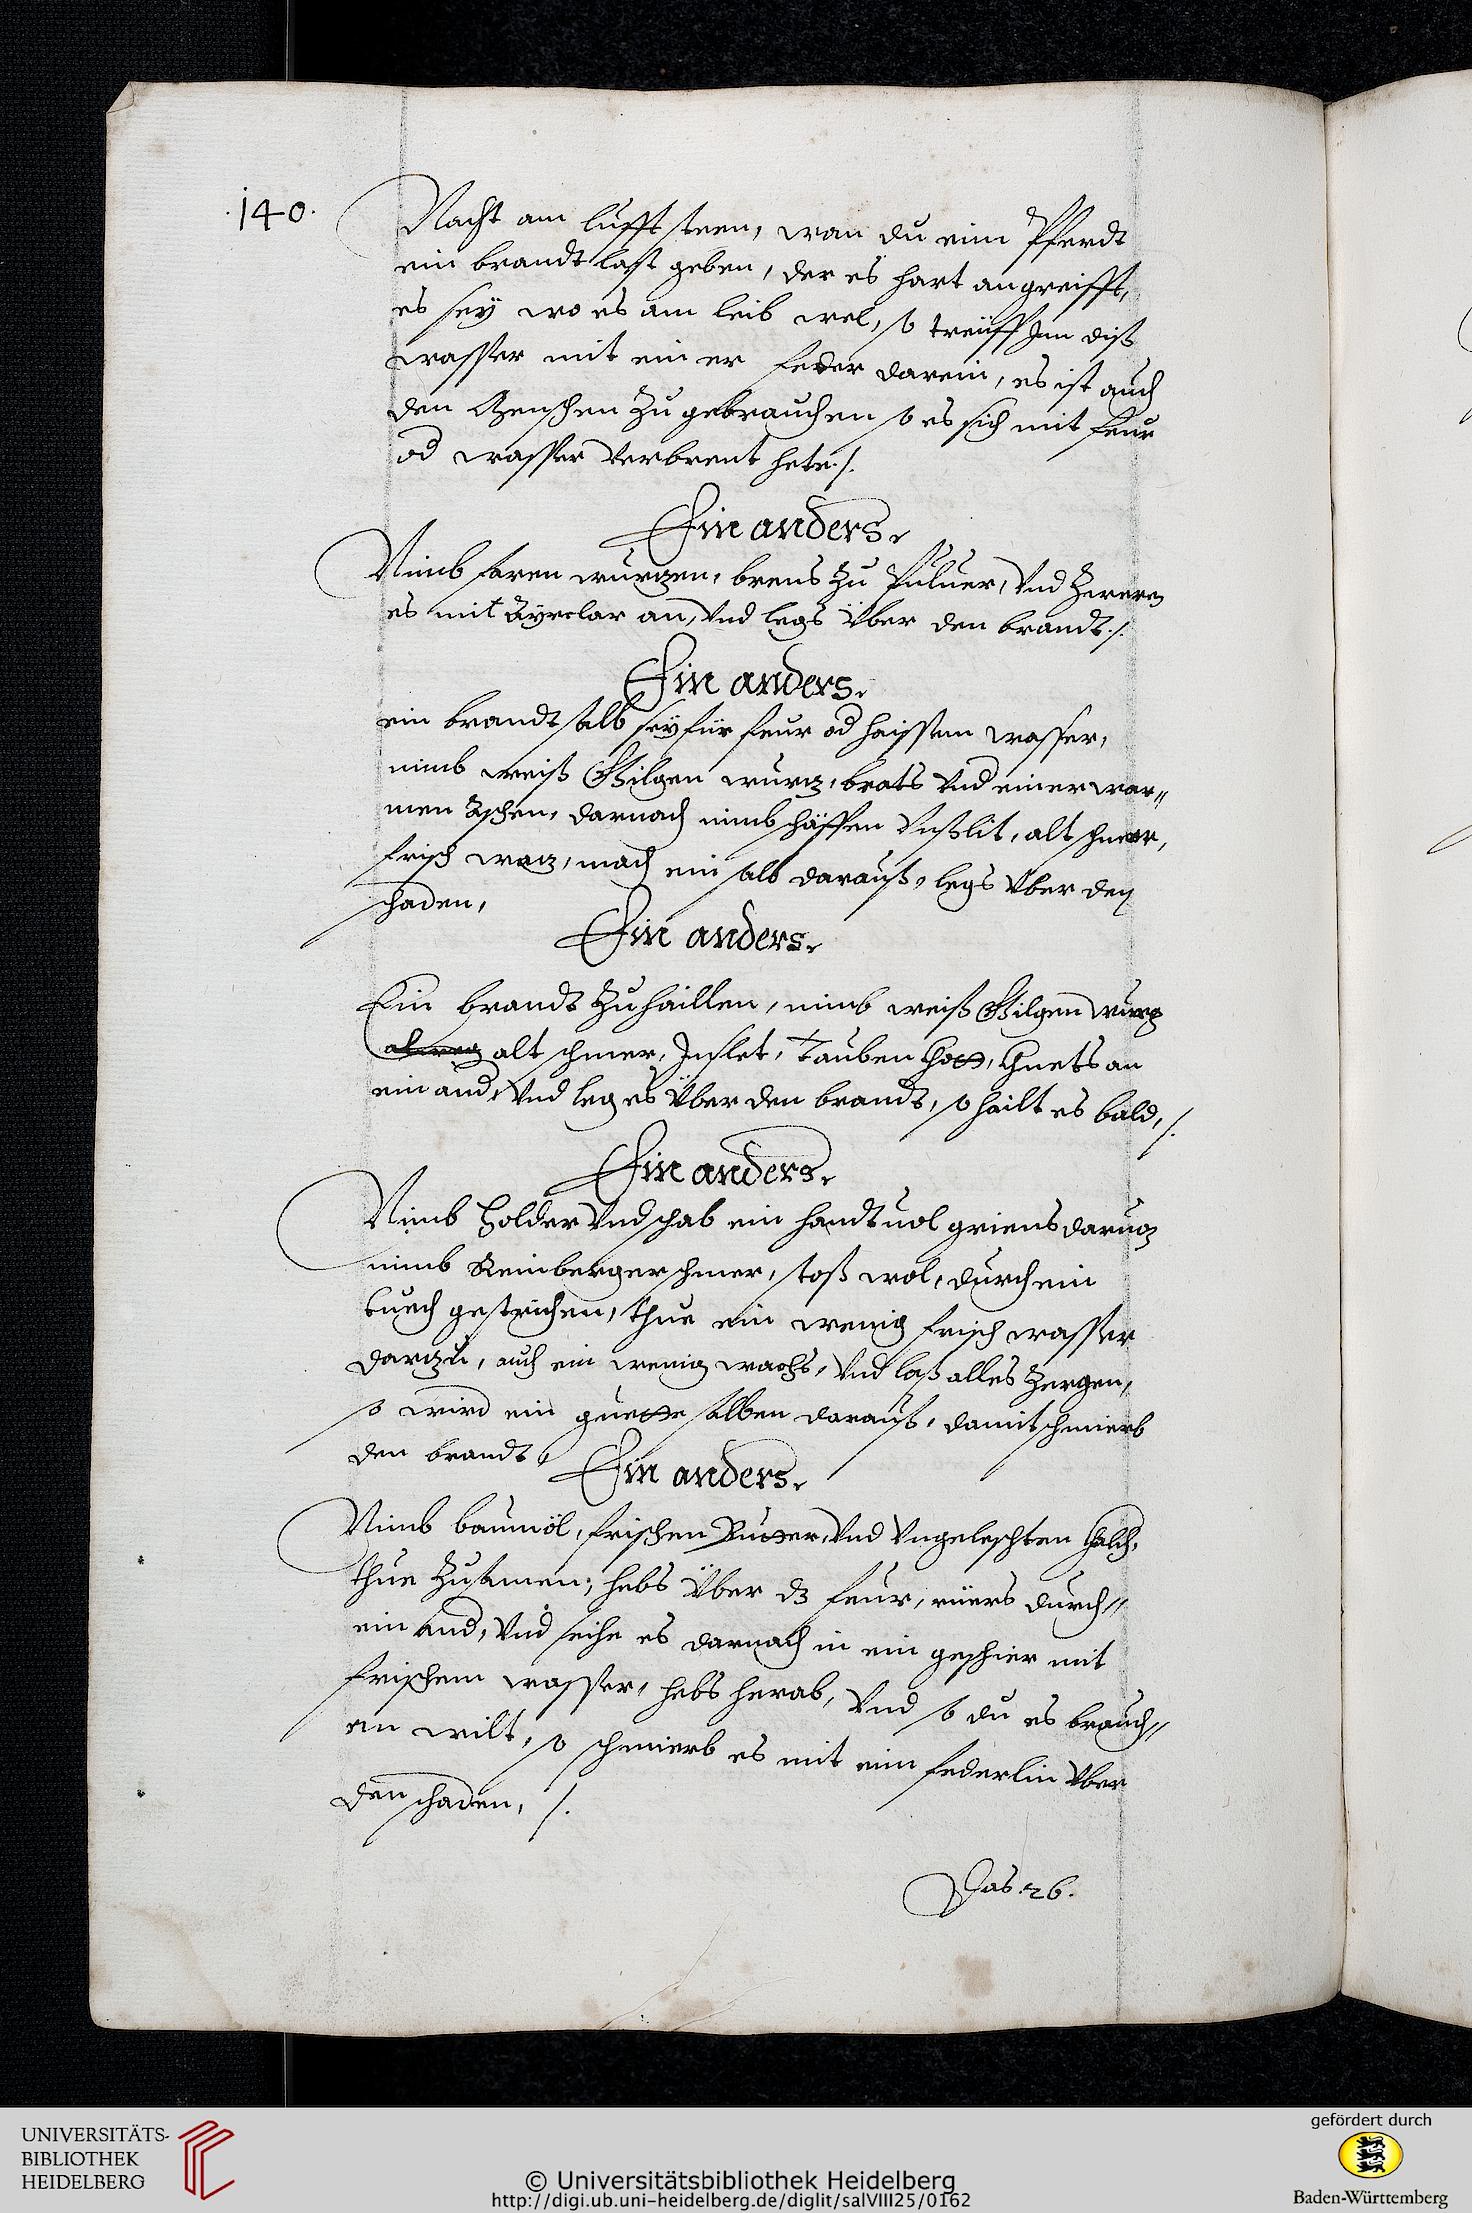 .140.
Nacht am lufft steen, wan du eim Pferdt
ein brandt last geben, der es hart angreifft,
es sey wo es am leib wel, so treüff Jm diß
wasser mit einer feder darein, es ist auch
den Menschen zu gebrauchen so es sich mit feur
od wasser verbrent hete ./.
Ein anders.
Nimb faren wurzen, brens zu Puluer, vnd
es mit Ayrclar an, vnd legs über den brandt ./.
Ein anders.
ein brandt salb sey für feur od haissem wasser,
nimb weiß Gilgen wurz, brats vnd einer war„
men Aschen, darnach nimb schäffen vnßlit, alt schmer,
frisch wax, mach ein salb darauß, legs über den
schaden,
Ein anders.
Ein brandt zu haillen, nimb weiß Gilgen wurz
alt schmer, Jnslet, Tauben Chott, Chnets an
ein and, vnd leg es über den brandt, so hailt es bald, ./.
Ein anders.
Nimb Holder vnd schab ein handtuol griens darvon
nimb Reinberger schmer, stoß wol, durch ein
tuech gestrichen, thue ein wenig frisch wasser
darzu, auch ein wenig wachs, vnd laß alles zergen,
so wird ein guette salben darauß, damit schmierb
den brandt
Ein anders.
Nimb baumöl, frischen Butter, vnd vngeleschten Chalch,
thue zusamen, hebs über dz feur, rüers durch„
ein and, vnd seihe es darnach in ein geschier mit
frischem wasser, hebs herab, vnd so du es brauch„
en wilt, so schmierb es mit eim federlin über
den schaden, ./.
Das 26.
UNIVERSITÄTS-
BIBLIOTHEK
HEIDELBERG
© Universitätsbibliothek Heidelberg
http://digi.ub.uni-heidelberg.de/diglit/salVIII25/0162
gefördert durch
Baden-Württemberg